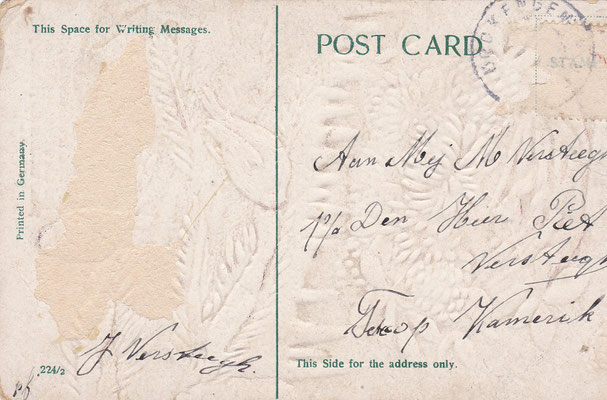 This Space for Writing Messages.
Printed in Germany.
224/2
J Versteegh.
POST CARD
KOCKENGEN
STAM
Aan Mej M Versteegh
p/a Den Heer Piet
Versteegh
Teckop Kamerik
This Side for the address only.